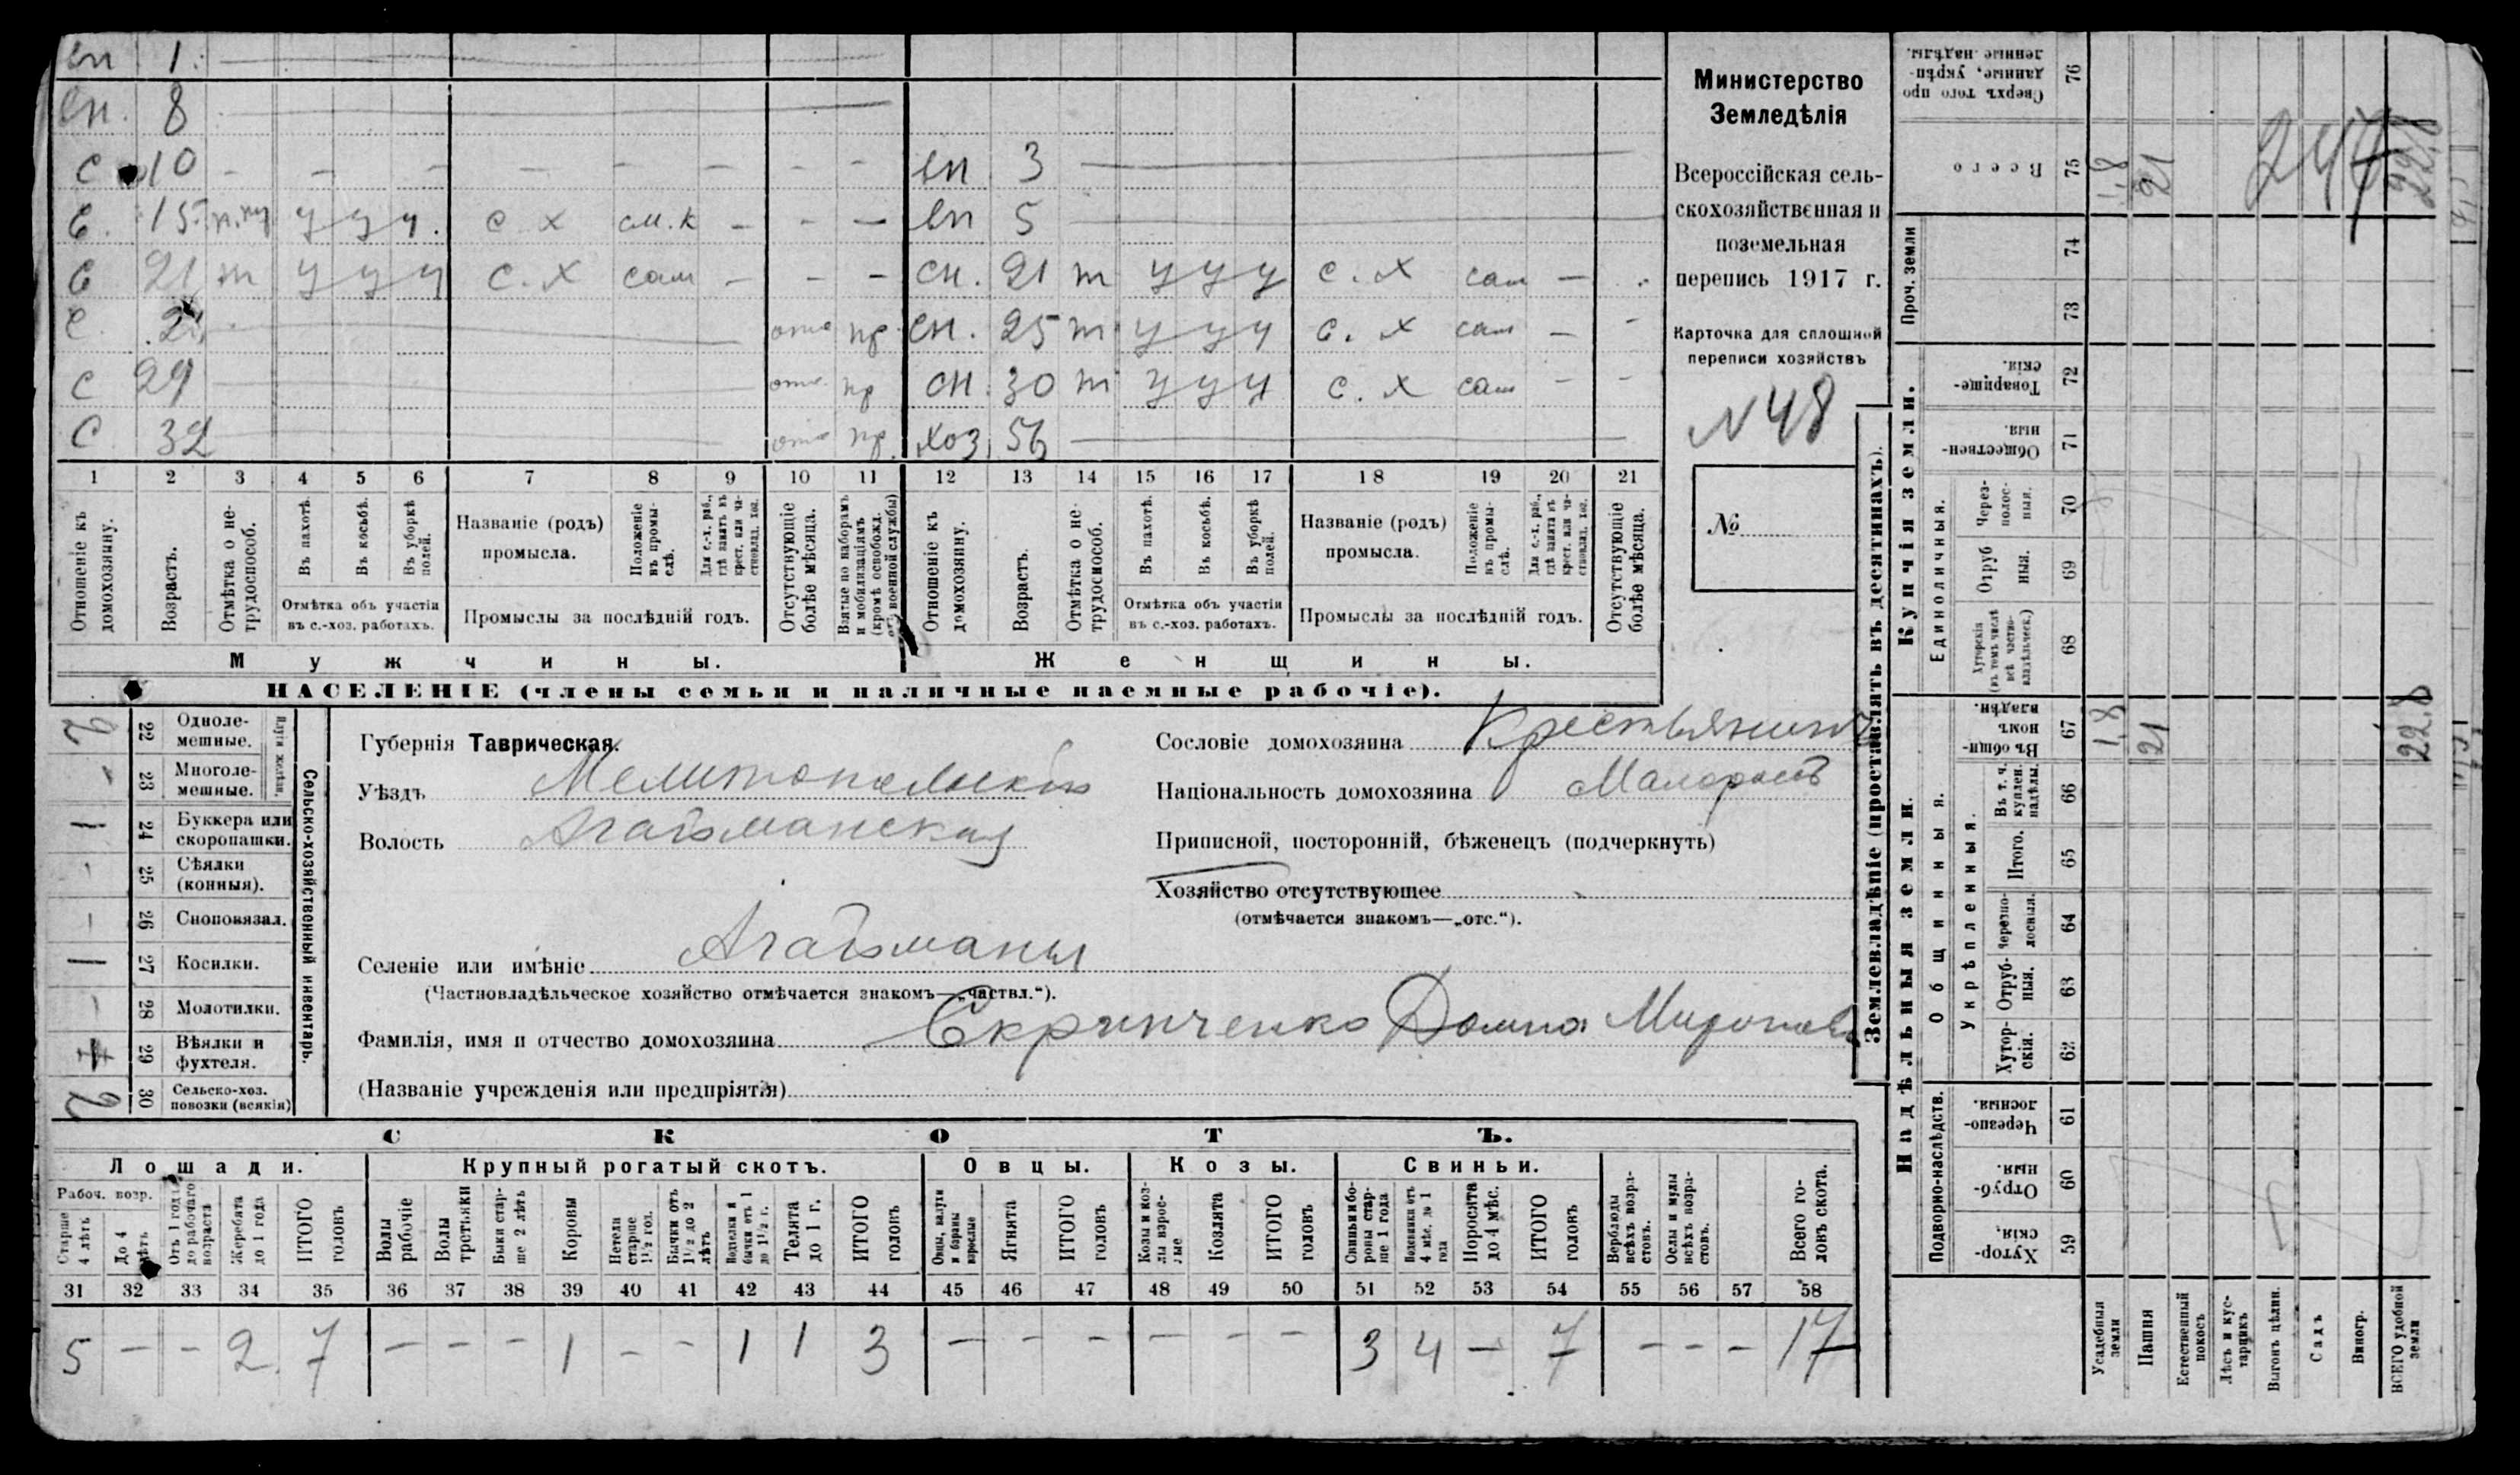 вп 1.
вн. 8
с 10 - - - - - - - - вп 3
с. 15 п.тр у у у. с. х см. к - - - вп 5
с 21 т у у у с. х сам - - - сн. 21 т у у у с. х сам - -
с. отс пр. сн. 25 т у у у с. х сам - -
с 29 отс. пр сн. 30 т у у у с. х сам - -
с 32 отс пр. хоз. 56
1 2 3 4 5 6 7 8 9 10 11 12 13 14 15 16 17 18 19 20 21
Отношеніе къ домохозяину.
Возрастъ.
Отмѣтка о нетрудоспособ.
Въ пахотѣ.
Въ косьбѣ.
Въ уборкѣ полей.
Отмѣтка объ участіи
въ с.-хоз. работахъ.
Названіе (родъ)
промысла.
Положеніе въ промыслѣ.
Для с.-х. раб., гдѣ занятъ въ крест. или частновлад. хоз.
Промыслы за послѣдній годъ.
Отсутствующіе болѣе мѣсяца.
Взятые по наборамъ и мобилизаціямъ (кромѣ освобожд. отъ военной службы)
Отношеніе къ домохозяину.
Возрастъ.
Отмѣтка о нетрудоспособ.
Въ пахотѣ.
Въ косьбѣ.
Въ уборкѣ полей.
Отмѣтка объ участіи
въ с.-хоз. работахъ.
Названіе (родъ)
промысла.
Положеніе въ промыслѣ.
Для с.-х. раб., гдѣ занята въ крест. или частновлад. хоз.
Промыслы за послѣдній годъ.
Отсутствующіе болѣе мѣсяца.
Мужчины.
Женщины.
НАСЕЛЕНІЕ (члены семьи и наличные наемные рабочіе).
Министерство
Земледѣлія
Всероссійская сель-
скохозяйственная и
поземельная
перепись 1917 г.
Карточка для сплошной
переписи хозяйствъ
N 48
№
Сельско-хозяйственный инвентарь.
Плуги желѣзн.
2 22 Одноле-
мешные.
- 23 Многоле-
мешные.
1 24 Буккера или
скоропашки.
- 25 Сѣялки
(конныя).
- 26 Сноповязал.
1 27 Косилки.
- 28 Молотилки.
1 29 Вѣялки и
фухтеля.
2 30 Сельско-хоз.
повозки (всякія)
Губернія Таврическая.
Уѣздъ Мелитопольскій
Волость Агайманская
Селеніе или имѣніе Агайманы
(Частновладѣльческое хозяйство отмѣчается знакомъ—„частвл.“).
Фамилія, имя и отчество домохозяина Скрипченко Домна Миронов
(Названіе учрежденія или предпріятія)
Сословіе домохозяина Крестьянинъ
Національность домохозяина Малороссъ
Приписной, посторонній, бѣженецъ (подчеркнуть)
Хозяйство отсутствующее
(отмѣчается знакомъ—„отс.“).
СКОТЪ.
Лошади. Крупный рогатый скотъ. Овцы. Козы. Свиньи.
Рабоч. возр.
Старше 4 лѣтъ
До 4 лѣтъ
Отъ 1 года до рабочаго возраста
Жеребята до 1 года
ИТОГО головъ
Волы рабочіе
Волы третьяки
Быки старше 2 лѣтъ
Коровы
Нетели старше 1½ год.
Бычки отъ 1½ до 2 лѣтъ
Телки и бычки отъ 1 до 1½ г.
Телята до 1 г.
ИТОГО головъ
Овцы, валухи и бараны взрослые
Ягнята
ИТОГО головъ
Козы и козлы взрослые
Козлята
ИТОГО головъ
Свиньи и боровы старше 1 года
Подсвинки отъ 4 мѣс. до 1 года
Поросята до 4 мѣс.
ИТОГО головъ
Верблюды всѣхъ возрастовъ.
Ослы и мулы всѣхъ возрастовъ.
Всего головъ скота.
31 32 33 34 35 36 37 38 39 40 41 42 43 44 45 46 47 48 49 50 51 52 53 54 55 56 57 58
5 - - 2 7 - - - 1 - - 1 1 3 - - - - - - 3 4 - 7 - - - 17
Землевладѣніе (проставлять въ десятинахъ).
Купчія земли.
Надѣльныя земли.
Сверхъ того проданные, укрѣпленные надѣлы. 76
Всего 75 1,8 21 247 22,8
Проч. земли 74
73
Товарищескія. 72
Общественныя. 71
Единоличныя.
Черезполосныя. 70
Отрубныя. 69
Хуторскія (въ томъ числѣ всѣ частновладѣльческ.) 68
Общинныя.
Въ общинномъ владѣн. 67 1,8 21 22,8
Укрѣпленныя.
Въ т. ч. куплен. надѣлы. 66
Итого. 65
Черезполосныя. 64
Отрубныя. 63
Хуторскія. 62
Подворно-наслѣдств.
Черезполосныя. 61
Отрубныя. 60
Хуторскія. 59
Усадебныя земли
Пашня
Естественный покосъ
Лѣсъ и кустарникъ
Выгонъ цѣлин.
Садъ
Виногр.
ВСЕГО удобной земли